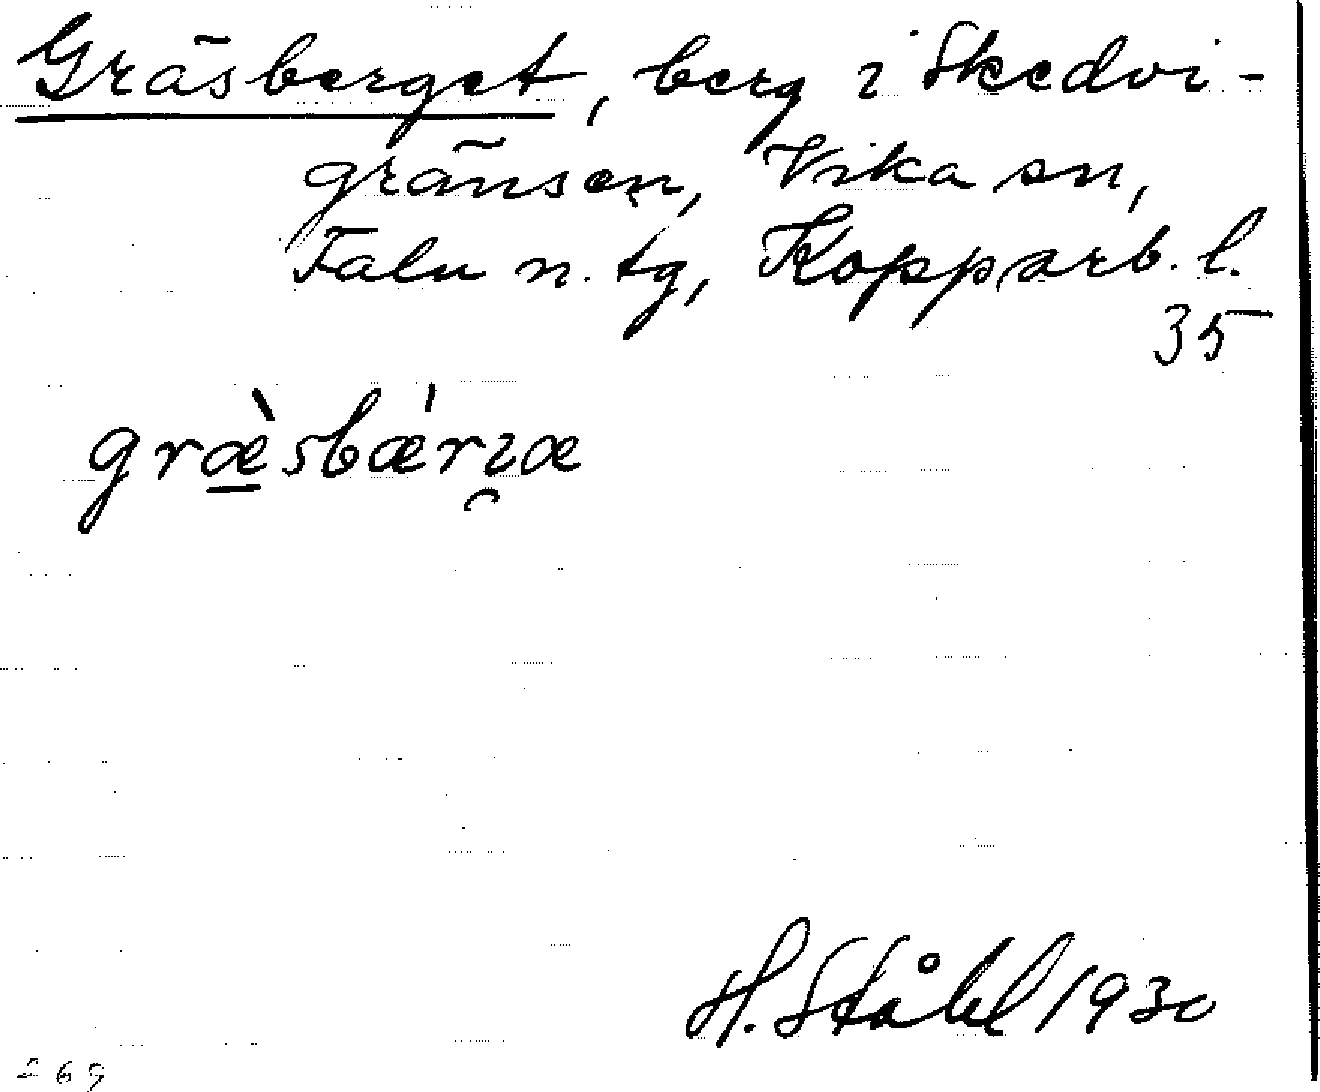 Gräsberget, berg i Skedvi-
gränsen, Vika sn,
Falu n. tg, Kopparb. l.
35
græ̱̀sbǽrı̯æ
H. Ståhl 1930
269